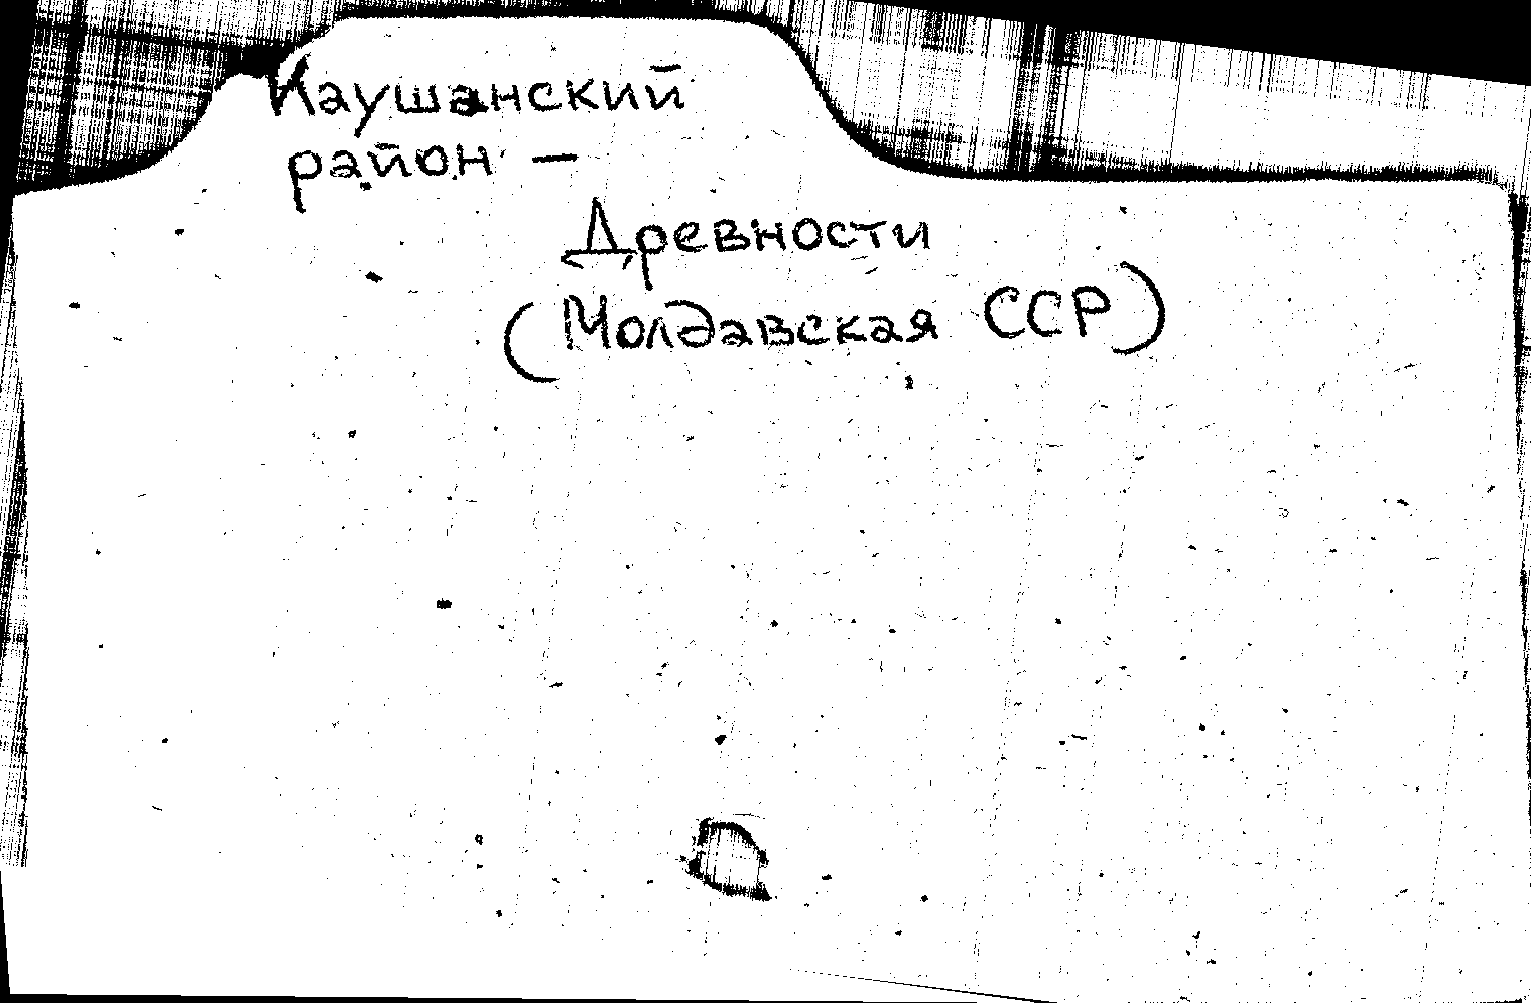 Каушанский
район —
Древности
(Молдавская ССР)